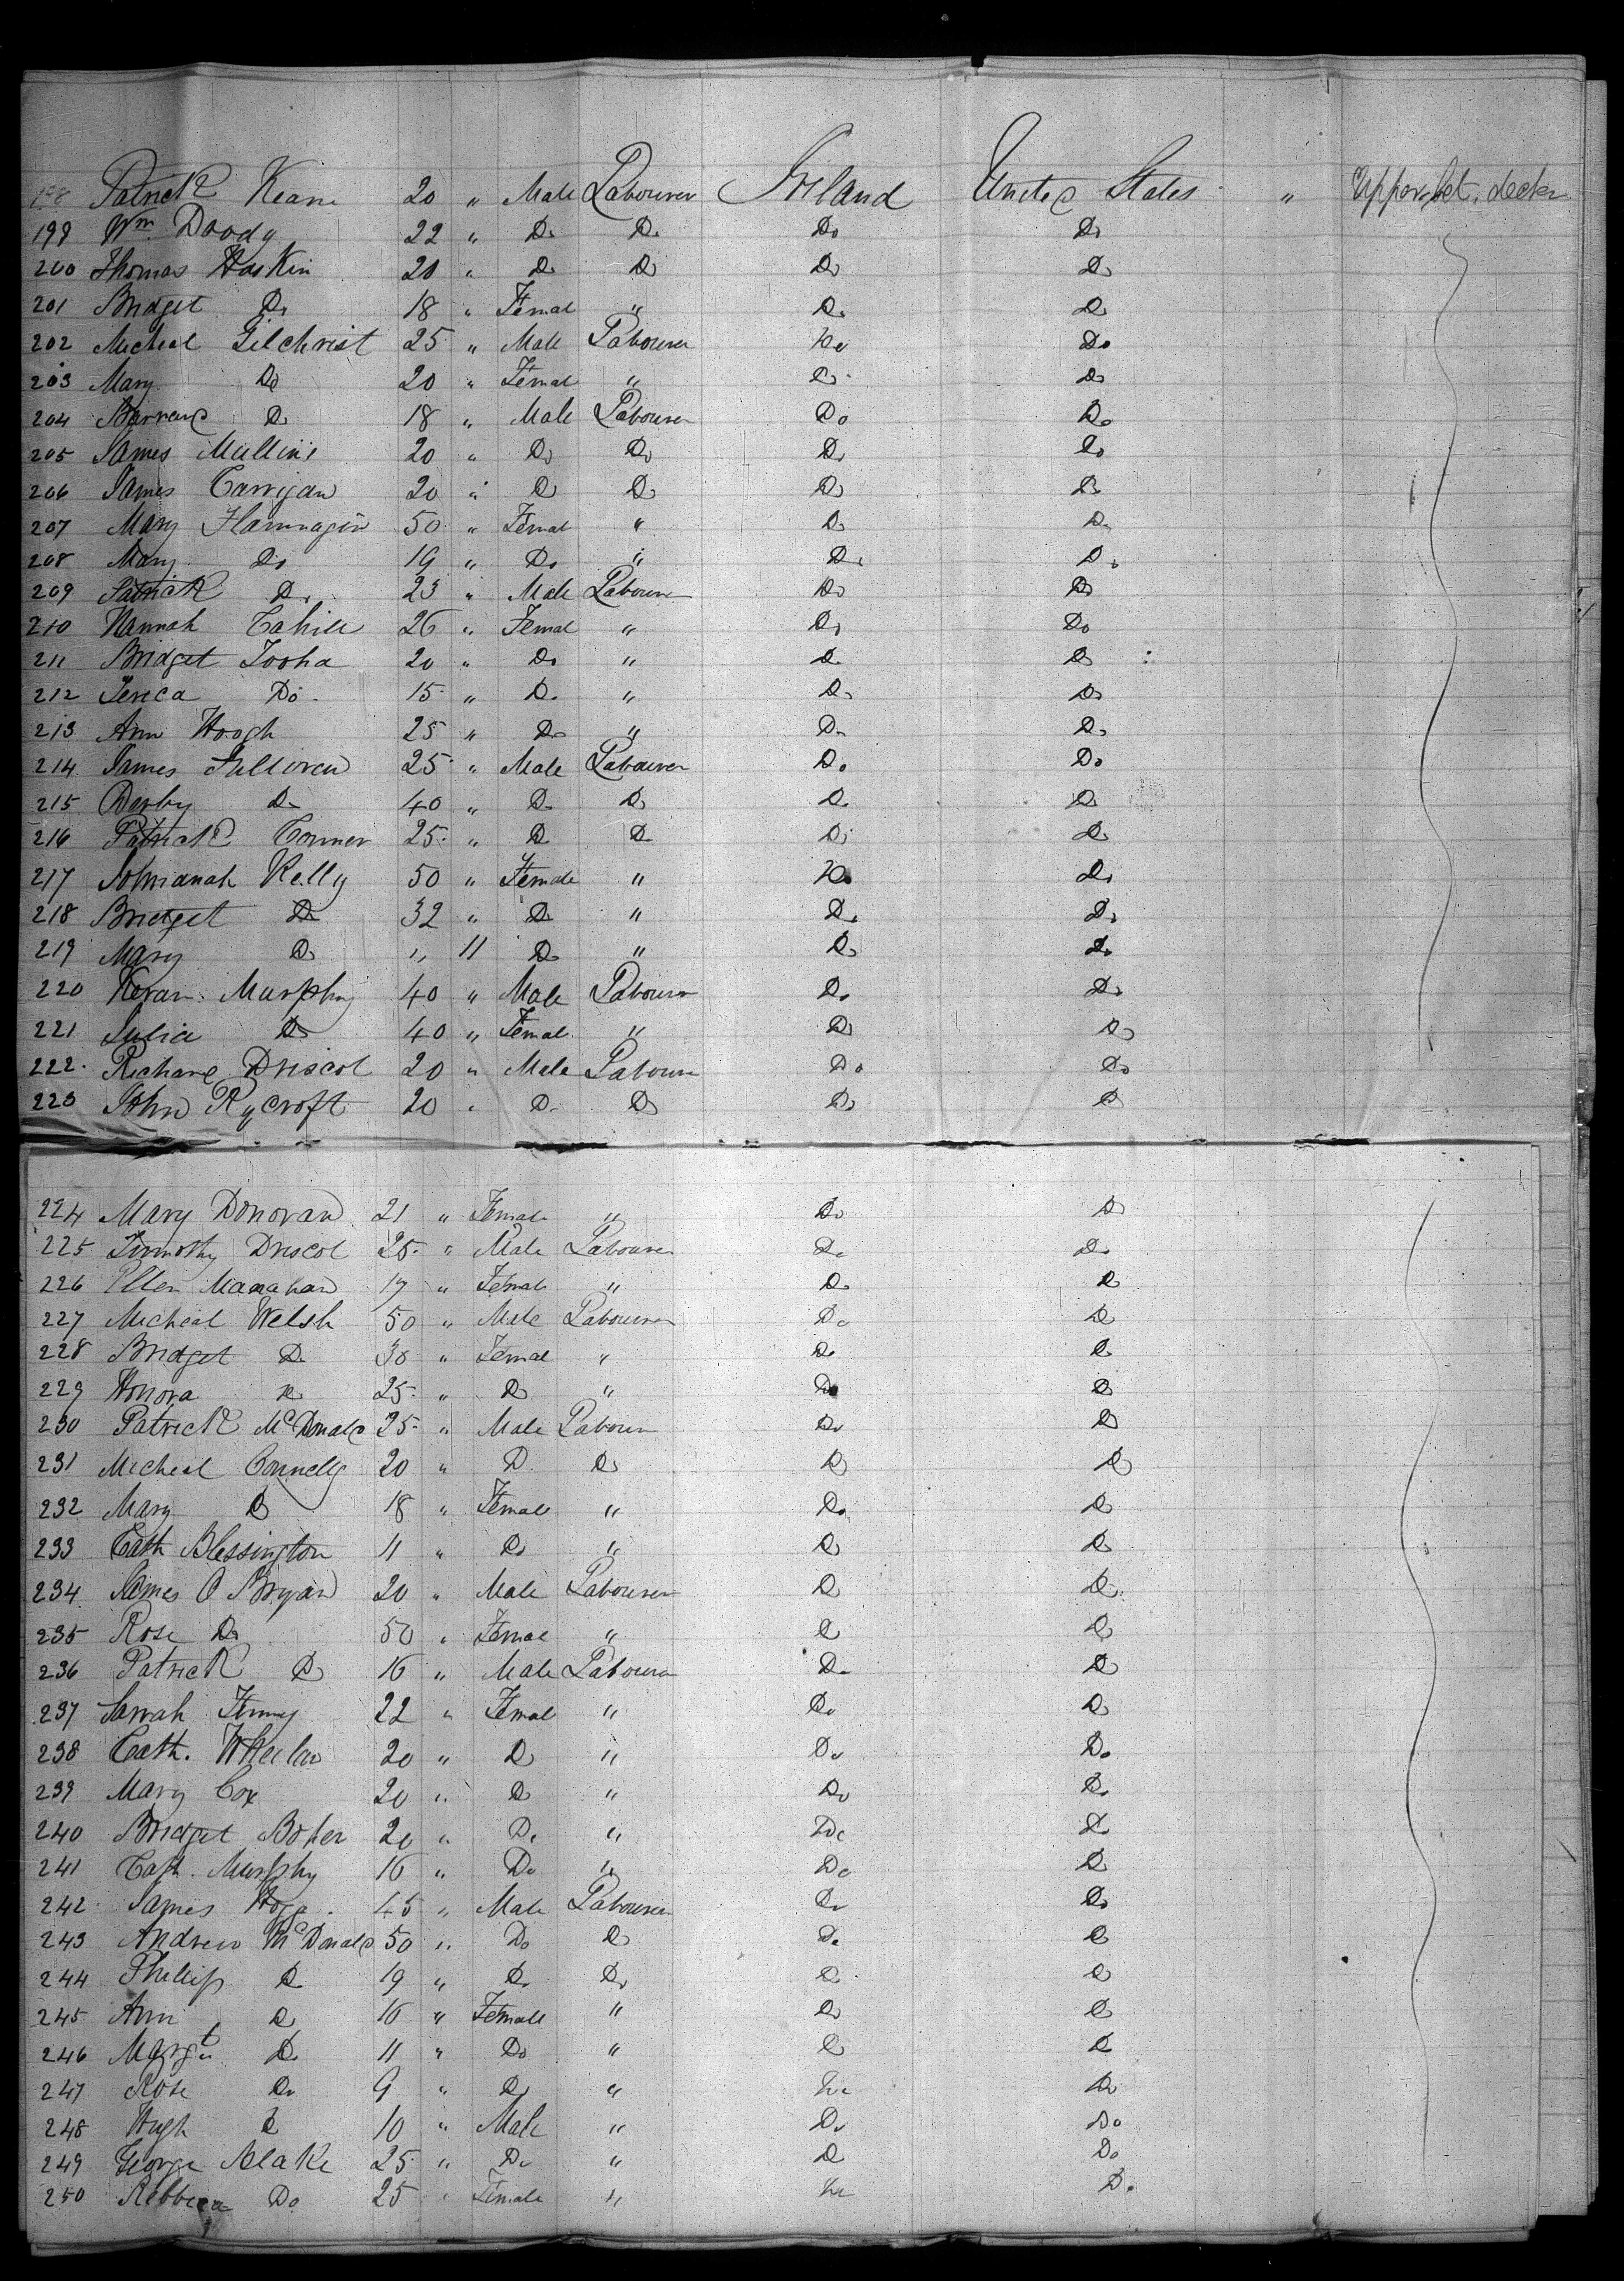 198 Patrick Kean 20 " Male Labourer Ireland United States " Upper bet. decks
199 Wm. Doody 22 " Do Do Do Do
200 Thomas Haskin 20 " Do Do Do Do
201 Bridget Do 18 " Femal " Do Do
202 Micheal Gilchrist 25 " Male Labourer Do Do
203 Mary Do 20 " Femal " Do Do
204 Do 18 " Male Labourer Do Do
205 James Mullins 20 " Do Do Do Do
206 James Carrigan 20 " Do Do Do Do
207 Mary Flannagin 50 " Femal " Do Do
208 Mary Do 19 " Do " Do Do
209 Patrick Do 23 " Male Labourer Do Do
210 Hannah Cahill 26 " Femal " Do Do
211 Bridget 20 " Do " Do Do
212 Do 15 " Do " Do Do
213 Ann Hoogh 25 " Do " Do Do
214 James Sullivan 25 " Male Labourer Do Do
215 Darby Do 40 " Do Do Do Do
216 Patrick Conner 25 " Do Do Do Do
217 Johnanah Kelly 50 " Female " Do Do
218 Bridget Do 32 " Do " Do Do
219 Mary Do " 11 Do " Do Do
220 Keran Murphy 40 " Male Labourer Do Do
221 Julia Do 40 " Femal " Do Do
222 Richard Driscol 20 " Male Labourer Do Do
223 John Rycroft 20 " Do Do Do Do
224 Mary Donovan 21 " Female " Do Do
225 Timothy Driscol 25 " Male Labourer Do Do
226 Ellen Manahan 17 " Female " Do Do
227 Micheal Welsh 50 " Male Labourer Do Do
228 Bridget Do 30 " Femal " Do Do
229 Honora Do 25 " Do " Do Do
230 Patrick McDonald 25 " Male Labourer Do Do
231 Micheal Connelly 20 " Do Do Do Do
232 Mary Do 18 " Female " Do Do
233 Cath Blessington 11 " Do " Do Do
234 James O Bryan 20 " Male Labourer Do Do
235 Rose Do 50 " Femal " Do Do
236 Patrick Do 16 " Male Labourer Do Do
237 Sarrah 22 " Femal " Do Do
238 Cath. Wheelan 20 " Do " Do Do
239 Mary Cox 20 " Do " Do Do
240 Bridget Boher 20 " Do " Do Do
241 Cath. Murphy 16 " Do " Do Do
242 James Hogg 45 " Male Labourer Do Do
243 Andrew McDonald 50 " Do Do Do Do
244 Phillip Do 19 " Do Do Do Do
245 Ann Do 16 " Female " Do Do
246 Margt Do 11 " Do " Do Do
247 Rose Do 9 " Do " Do Do
248 Hugh Do 10 " Male " Do Do
249 George Blake 25 " Do " Do Do
250 Rebbeca Do 25 " Female " Do Do